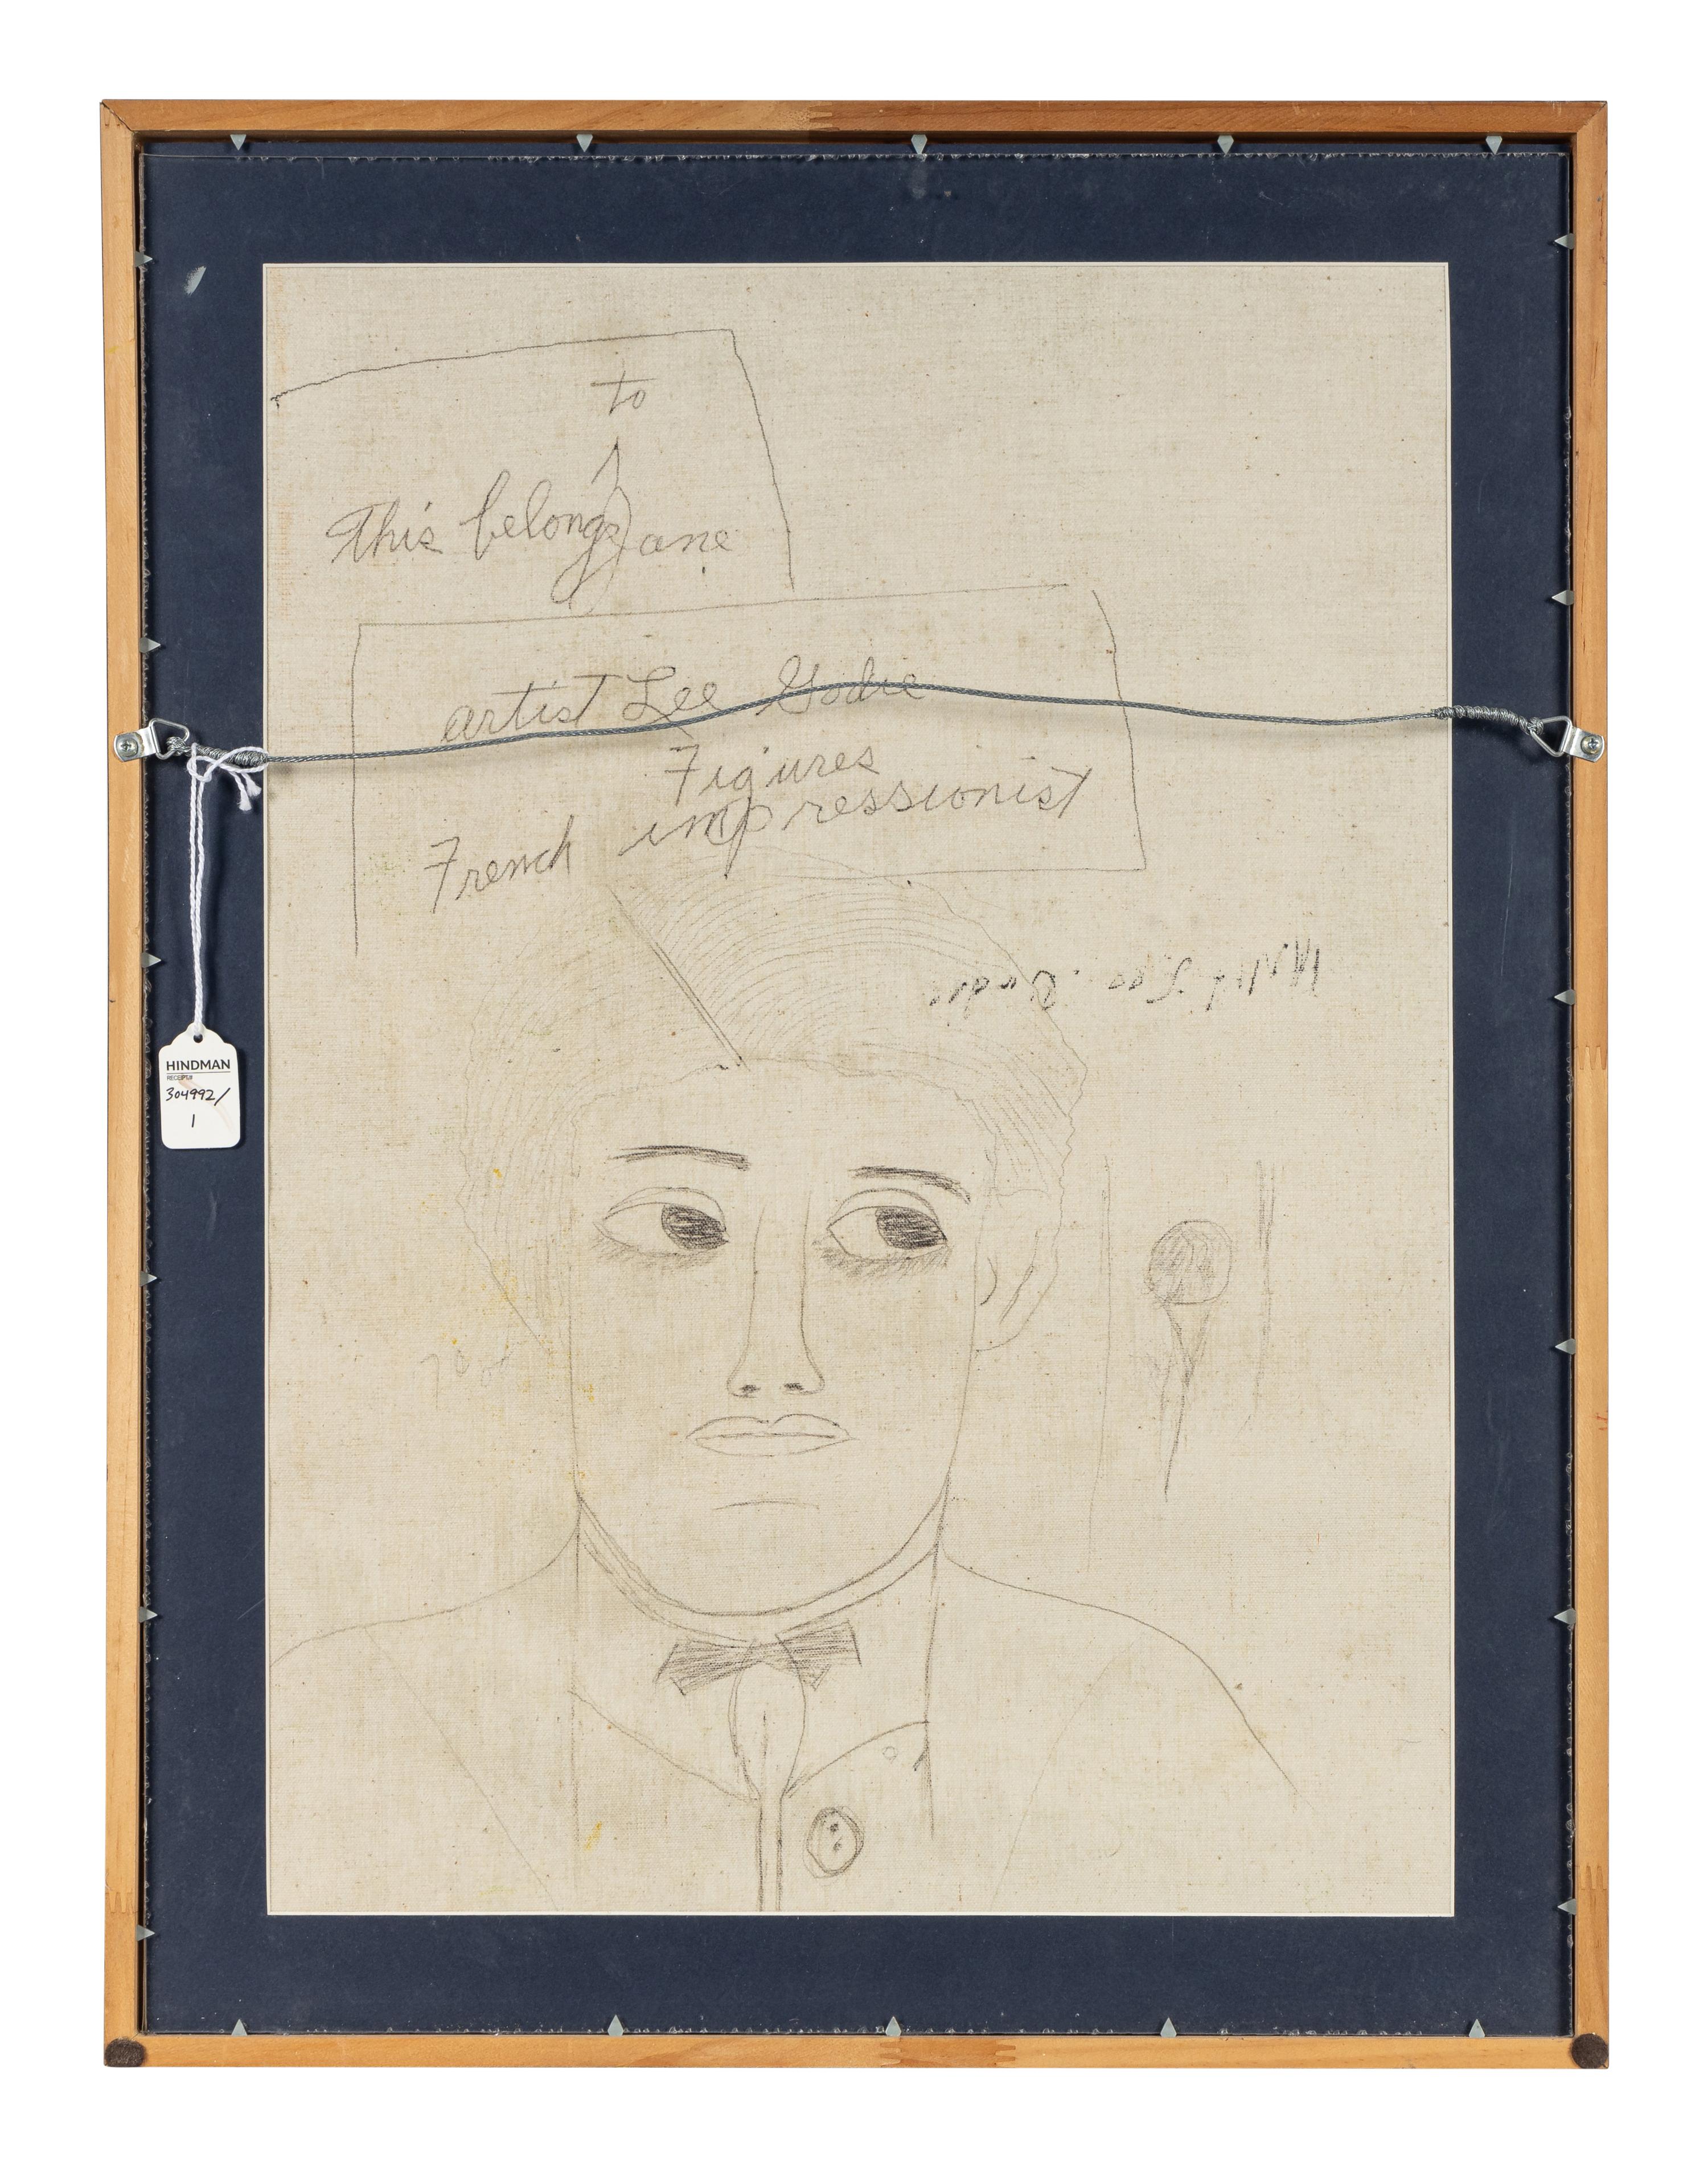 to
This belongs Jane
artist Lee Godie
Figures
French impressionist
HINDMAN
RECEIPT#
304992/
1